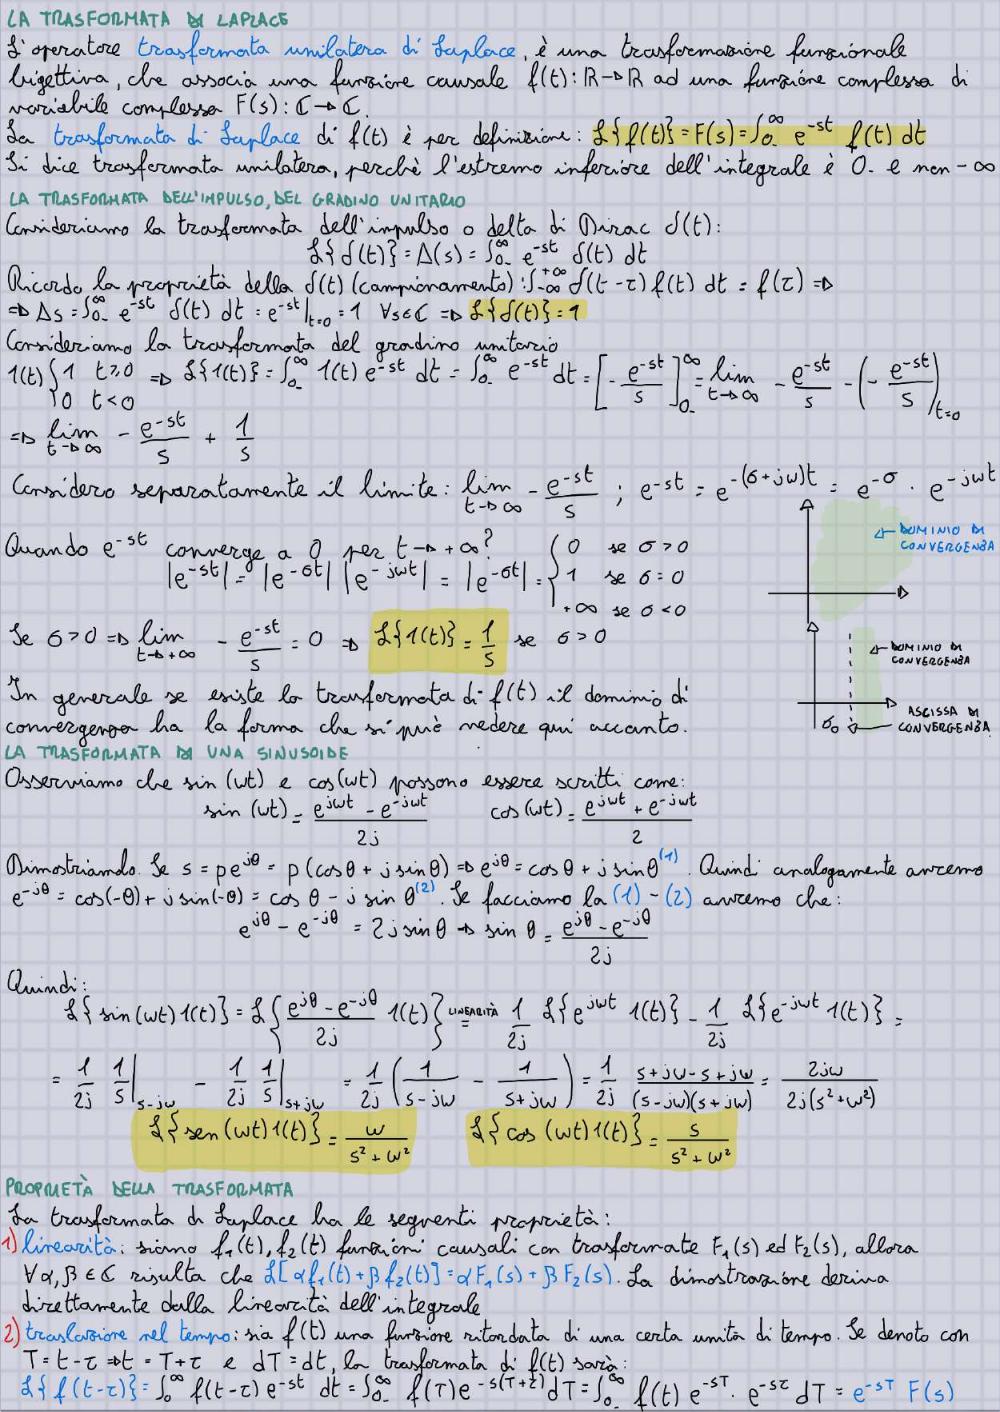 LA TRASFORMATA DI LAPLACE
L'operatore trasformata unilatera di Laplace, è una trasformazione funzionale
bigettiva, che associa una funzione causale f(t): ℝ→ℝ ad una funzione complessa di
variabile complessa F(s): ℂ→ℂ.
La trasformata di Laplace di f(t) è per definizione: ℒ{f(t)} = F(s) = ∫₀₋^∞ e^-st f(t) dt
Si dice trasformata unilatera, perchè l'estremo inferiore dell'integrale è 0₋ e non -∞
LA TRASFORMATA DELL'IMPULSO, DEL GRADINO UNITARIO
Consideriamo la trasformata dell'impulso o delta di Dirac δ(t):
ℒ{δ(t)} = Δ(s) = ∫₀₋^∞ e^-st δ(t) dt
Ricordo la proprietà della δ(t) (campionamento): ∫-∞^+∞ δ(t-τ) f(t) dt = f(τ) ⇒
⇒ Δs = ∫₀₋^∞ e^-st δ(t) dt = e^-st|t=0 = 1 ∀s∈ℂ ⇒ ℒ{δ(t)} = 1
Consideriamo la trasformata del gradino unitario
1(t) { 1 t≥0 ; 0 t<0 ⇒ ℒ{1(t)} = ∫₀₋^∞ 1(t) e^-st dt = ∫₀₋^∞ e^-st dt = [- e^-st/s]₀₋^∞ = lim t→∞ - e^-st/s - (- e^-st/s)t=0
⇒ lim t→∞ - e^-st/s + 1/s
Considero separatamente il limite: lim t→∞ - e^-st/s ; e^-st = e^-(σ+jω)t = e^-σ · e^-jωt
DOMINIO DI
CONVERGENZA
Quando e^-st converge a 0 per t→+∞?
|e^-st| = |e^-σt| |e^-jωt| = |e^-σt| = { 0 se σ>0
1 se σ=0
+∞ se σ<0
Se σ>0 ⇒ lim t→+∞ - e^-st/s = 0 ⇒ ℒ{1(t)} = 1/s se σ>0
DOMINIO DI
CONVERGENZA
In generale se esiste la trasformata di f(t) il dominio di
convergenza ha la forma che si può vedere qui accanto.
σ₀ ASCISSA DI
CONVERGENZA
LA TRASFORMATA DI UNA SINUSOIDE
Osserviamo che sin (ωt) e cos(ωt) possono essere scritti come:
sin (ωt) = (e^jωt - e^-jωt)/2j cos(ωt) = (e^jωt + e^-jωt)/2
Dimostriamolo. Se s = ρe^jθ = ρ(cosθ + j sinθ) ⇒ e^jθ = cosθ + j sinθ (1). Quindi analogamente avremo
e^-jθ = cos(-θ) + j sin(-θ) = cos θ - j sin θ (2). Se facciamo la (1) - (2) avremo che:
e^jθ - e^-jθ = 2j sinθ → sin θ = (e^jθ - e^-jθ)/2j
Quindi:
ℒ{sin(ωt) 1(t)} = ℒ{(e^jθ - e^-jθ)/2j 1(t)} LINEARITÀ = 1/2j ℒ{e^jωt 1(t)} - 1/2j ℒ{e^-jωt 1(t)} =
= 1/2j 1/s|s-jω - 1/2j 1/s|s+jω = 1/2j (1/(s-jω) - 1/(s+jω)) = 1/2j (s+jω-s+jω)/((s-jω)(s+jω)) = 2jω/(2j(s²+ω²))
ℒ{sen(ωt) 1(t)} = ω/(s²+ω²) ℒ{cos (ωt) 1(t)} = s/(s²+ω²)
PROPRIETÀ DELLA TRASFORMATA
La trasformata di Laplace ha le seguenti proprietà:
1) linearità: siano f₁(t), f₂(t) funzioni causali con trasformate F₁(s) ed F₂(s), allora
∀α,β∈ℂ risulta che ℒ[αf₁(t) + βf₂(t)] = αF₁(s) + βF₂(s). La dimostrazione deriva
direttamente dalla linearità dell'integrale
2) traslazione nel tempo: sia f(t) una funzione ritardata di una certa unità di tempo. Se denoto con
T = t-τ ⇒ t = T+τ e dT = dt, la trasformata di f(t) sarà:
ℒ{f(t-τ)} = ∫₀₋^∞ f(t-τ) e^-st dt = ∫₀₋^∞ f(T) e^-s(T+τ) dT = ∫₀₋^∞ f(t) e^-sT · e^-sτ dT = e^-sT F(s)